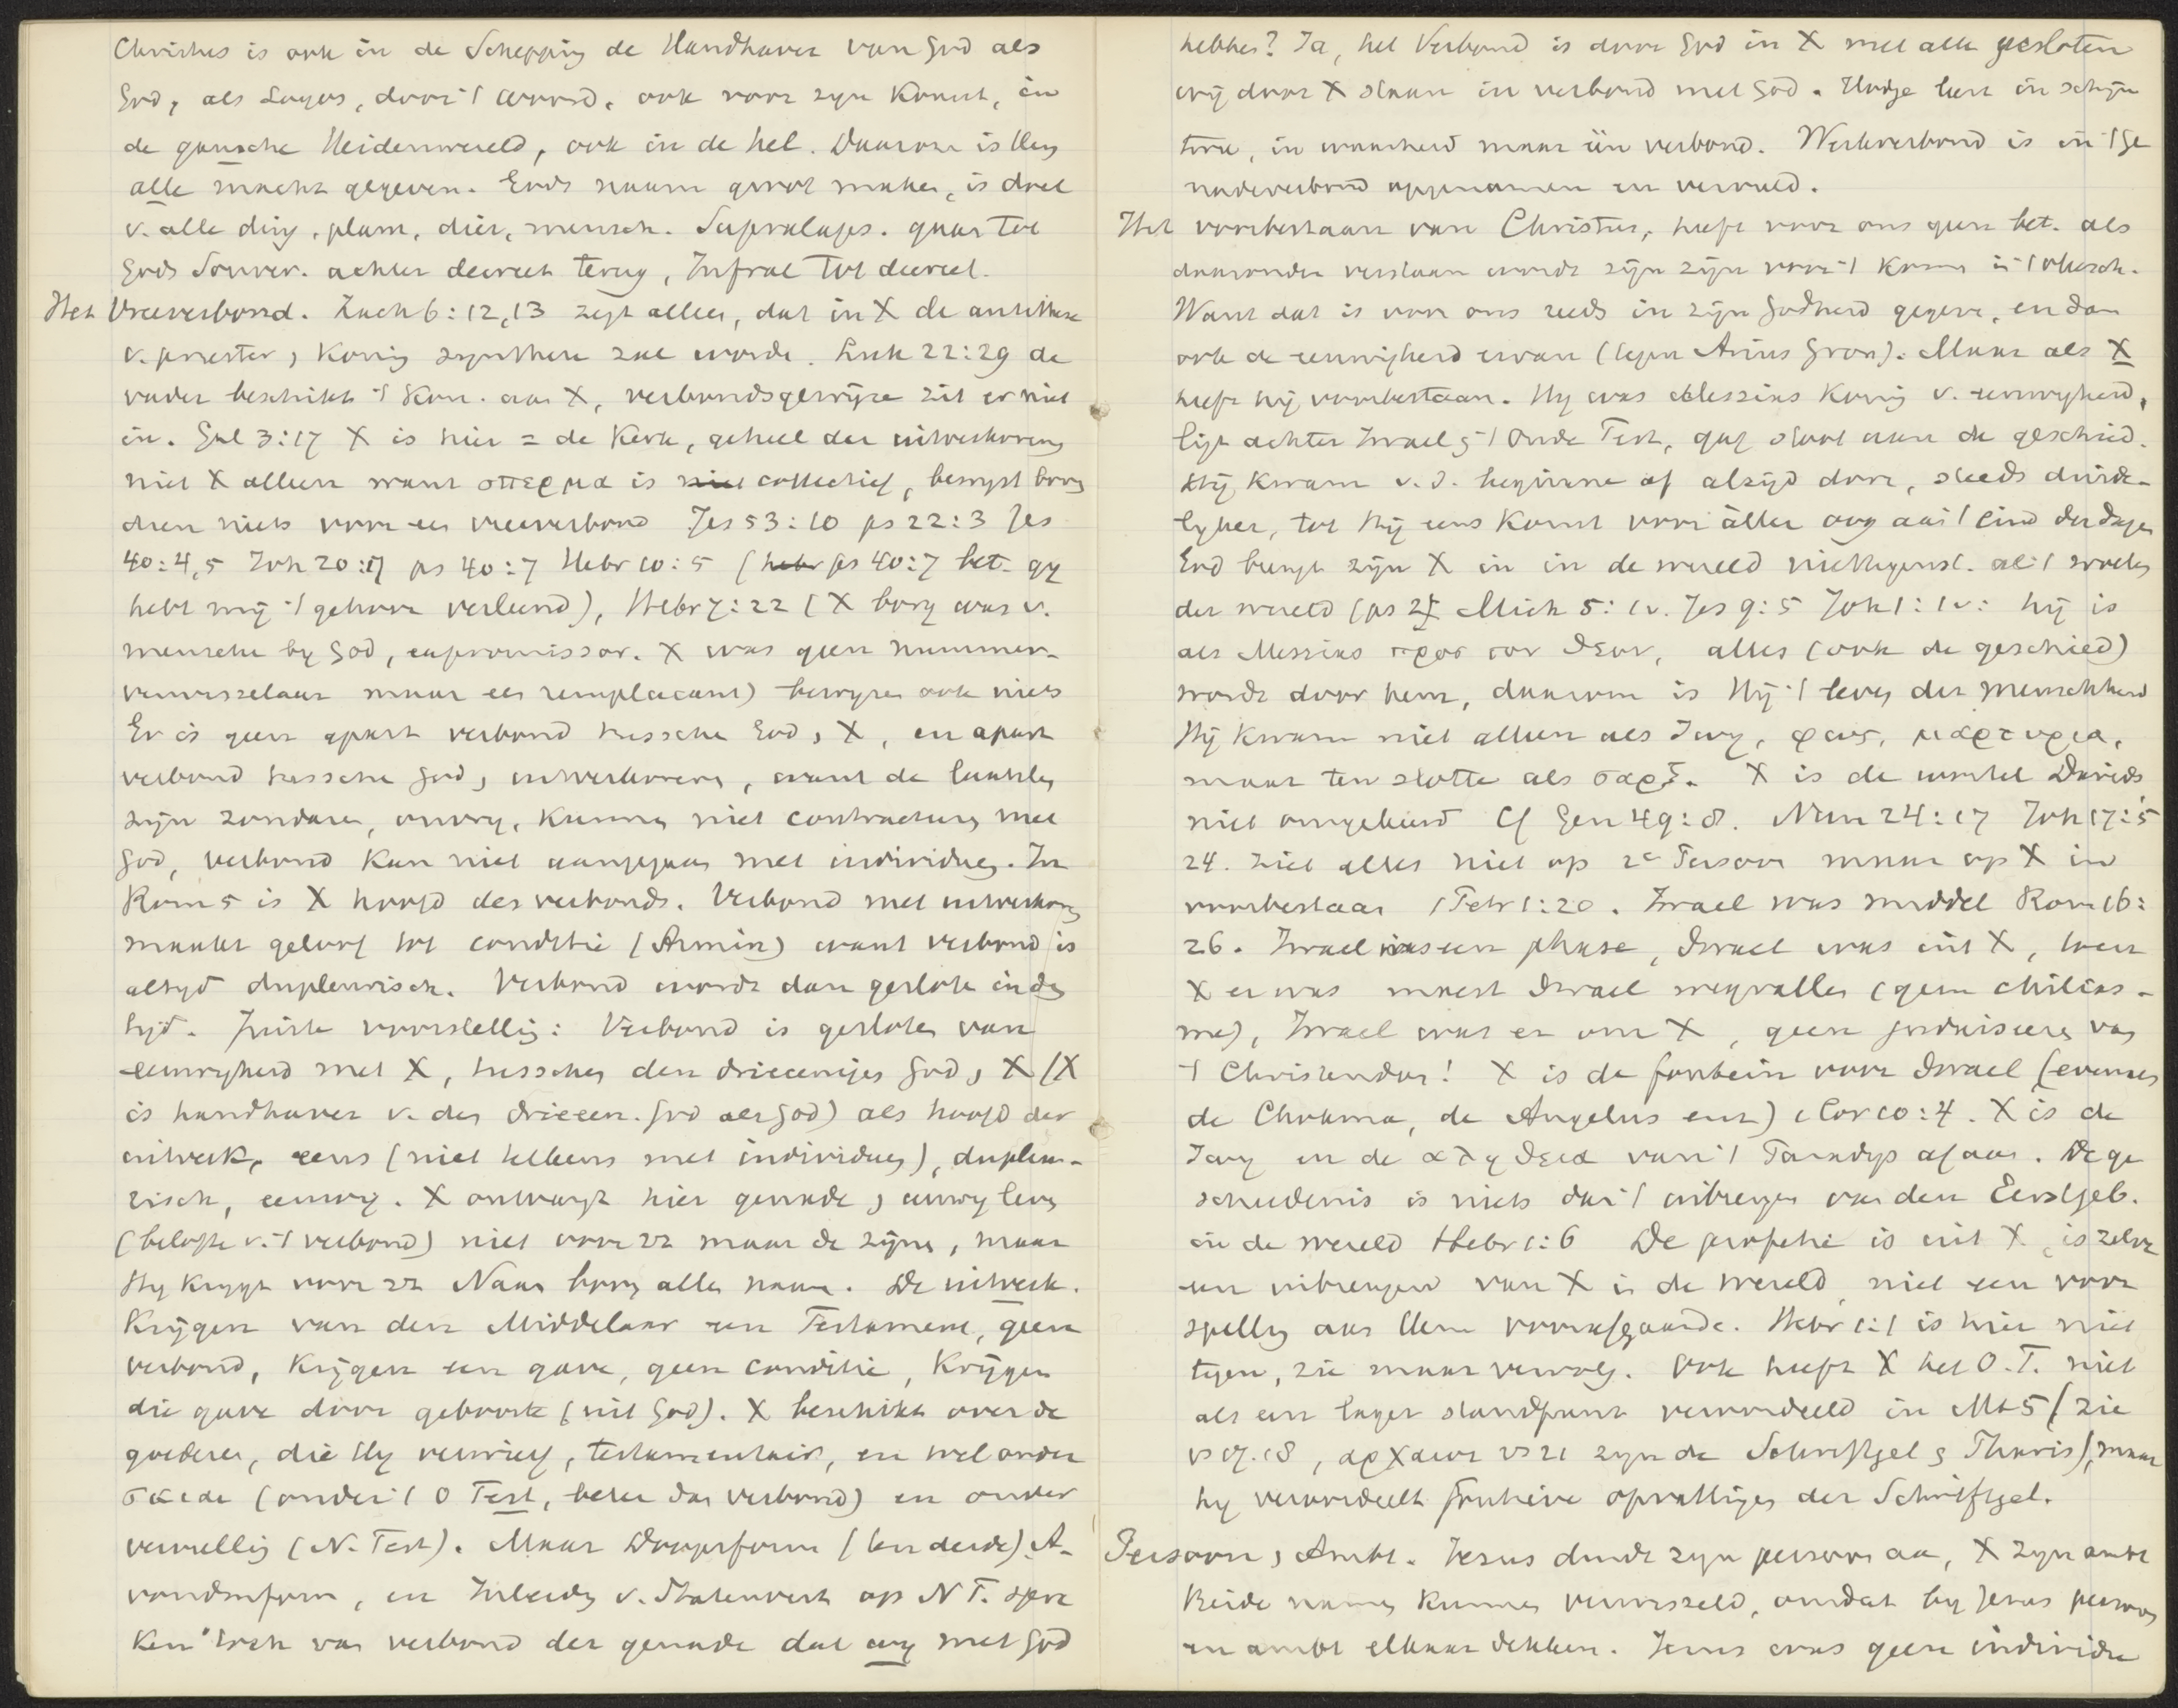 Christus is ook in de Schepping de Handhaver van God als
God, als Logos, door 't woord, ook voor zyn Komst, in
de gansche Heidenwereld, ook in de hel. Daarom is Hem
alle macht gegeven. Gods naam groot maken, is doel
v. alle ding, plant, dier, mensch. Supralaps. gaat tot
Gods Souver. achter decreet terug, Infral tot decreet.
Het Vreeverbond. Zach 6:12,13 zegt alleen, dat in X de antithese
v. priester, Koning synthese zal worde. Luk 22:29 de
vader beschikt 't Kon. aan X, verbondsgewijze zit er niet
in. Gal 3:17 X is hier = de Kerk, geheel der uitverkorenen
niet X alleen want σπερμα is collectief, bewyst boven
dien niets voor een vreeverbond Jes 53:10 ps 22:3 Jes
40:4,5 Joh 20:17 ps 40:7 Hebr 10:5 (ps 40:7 bet. gy
hebt mij 't gehoor verleend), Hebr 7:22 (X borg was v.
mensche by God, expromissor. X was geen nummer-
verwisselaar maar een remplacant) bewyzen ook niets
Er is geen apart verbond tussche God, X, en apart
verbond tussche God, uitverkorenen, want de laatsten
zijn zondaren, onvry, kunnen niet contracteren met
God, verbond kan niet aangegaan met individuen. In
Rom 5 is X hoofd des verbonds. Verbond met uitverkoren
maakt geloof tot conditie (Armin) want verbond is
altyd dupleurisch. Verbond wordt dan geslote in den
tyd. Juiste voorstelling: Verbond is gesloten van
eeuwigheid met X, tusschen den drieeenigen God, X (X
is handhaver v. den drieeen. God als God) als hoofd der
uitverk, eens (niet telkens met individuen), dupleu-
risch, eeuwig. X ontvangt hier genade, eeuwig leven
(belofte v. 't verbond) niet voor zz maar de zijne, maar
Hy krygt voor zz Naam boven alle name. De uitverk.
Krijgen van den Middelaar een Testament, geen
verbond, Krijgen een gave, geen conditie, Krijgen
die gave door geboorte (uit God). X beschikt over de
goederen, die Hy verwierf, testamentair, en wel onder
(onder 't O Test, beter dan verbond) en onder
vervulling (N. Test). Maar Doopsform (ten derde) A-
vondmform, en Inleiding v. Statenvert op N T. spre
ken toch van verbond der genade dat wy met God
hebben? Ja, het Verbond is door God in X met alle gesloten
wij door X staan in verbond met God. Hodge leert in schijn
twee, in waarheid maar één verbond. Werkverbond is in 't ge
nadeverbond opgenomen en vervuld.
Het voorbestaan van Christus, heeft voor ons geen bet. als
daaronder verstaan wordt zijn zijn voor 't komen in 't vleesch.
Want dat is voor ons reeds in zijn Godheid gegeve, en dan
ook de eeuwigheid ervan (tegen Arius Gron). Maar als X
heeft hij voorbestaan. Hy was Messias Koning v. eeuwigheid,
ligt achter Israel, 't Oude Test, gaf stoot aan de geschied.
Hij kwam v. d. beginne af altijd door, steeds duide-
lyker, tot Hij eens komt voor aller oog aan 't eind der dagen
God brengt zijn X in in de wereld niettegenst. al 't woelen
der wereld (ps 2, Mich 5:1v. Jes 9:5 Joh 1:1v: hij is
als Messias προσ τον θεον, alles (ook de geschied)
wordt door hem, daarom is Hij 't leven der menschheid
Hij kwam niet alleen als ζωη, φως, μαρτυρια,
maar ten slotte als σαρξ. X is de wortel Davids
niet omgekeerd Cf Gen 49:8. Num 24:17 Joh 17:5
24. ziet alles niet op 2e Persoon maar op X in
voorbestaan 1 Petr 1:20. Israel was middel Rom 16:
26. Israel was een phase, Israel was uit X, toen
X er was moest Israel wegvallen (geen chilias-
me), Israel was er om X, geen judaiseeren van
't Christendom! X is de fontein voor Israel (evenals
de Chokma, de Angelus enz) 1 Cor 10:4. X is de
ζωη en de αληθεια van 't Paradys af aan. De ge
schiedenis is niets dan 't inbrengen van den Eerstgeb.
in de wereld Hebr 1:6 De profetie is uit X, is zelve
een inbrengen van X in de wereld niet een voor
spelling aan Hem voorafgaande. Hebr 1:1 is hier niet
tegen, zie maar vervolg. Ook heeft X het O.T. niet
als een lager standpunt veroordeeld in Mt 5 (zie
vs 17.18, αρχαιοι vs 21 zyn de Schriftgel, Phariz), maar
hy veroordeelt foutieve opvattingen der Schriftgel.
Persoon, Ambt. Jezus duidt zyn persoon aan, X zyn ambt
Beide namen kunnen verwisseld, omdat by Jezus persoon
en ambt elkaar dekken. Jezus was geen individu